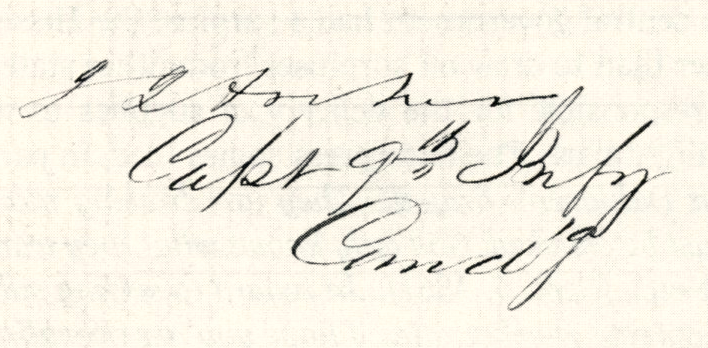 J J Archer
Capt 9th Infy
Comd'g